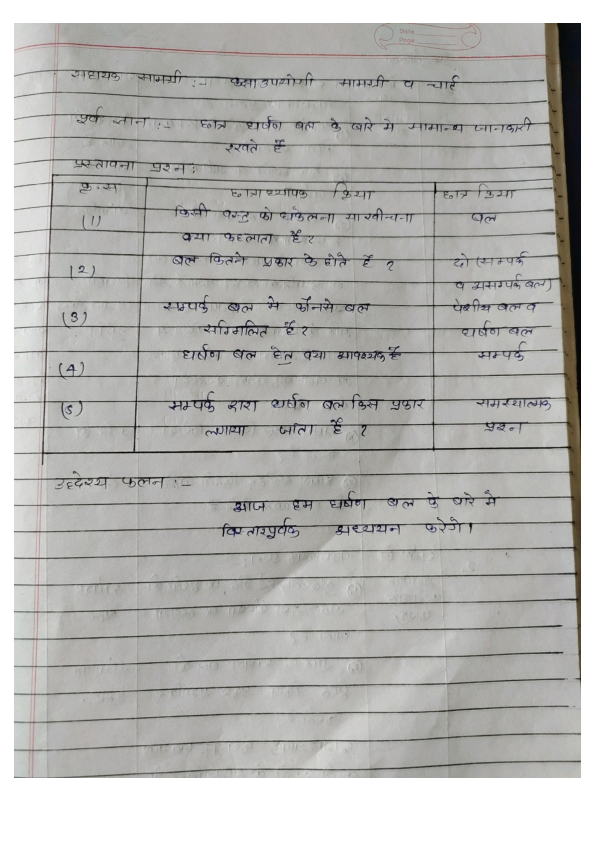 Date
Page
सहायक सामग्री :- कक्षाउपयोगी सामग्री व चार्ट
पूर्व ज्ञान :- छात्र घर्षण बल के बारे मे सामान्य जानकारी
रखते हैं
प्रस्तावना प्रश्न :
क्र.स छात्राध्यापक क्रिया छात्र क्रिया
(1) किसी वस्तु को धकेलना या खींचना बल
क्या कहलाता है ?
(2) बल कितने प्रकार के होते है ? दो (सम्पर्क
व असम्पर्क बल)
(3) सम्पर्क बल मे कौनसे बल पेशीय बल व
सम्मिलित है ? घर्षण बल
(4) घर्षण बल हेतु क्या आवश्यक है सम्पर्क
(5) सम्पर्क द्वारा घर्षण बल किस प्रकार समस्यात्मक
लगाया जाता है ? प्रश्न
उद्देश्य कलन :-
आज हम घर्षण बल के बारे मे
विस्तारपूर्वक अध्ययन करेगे।